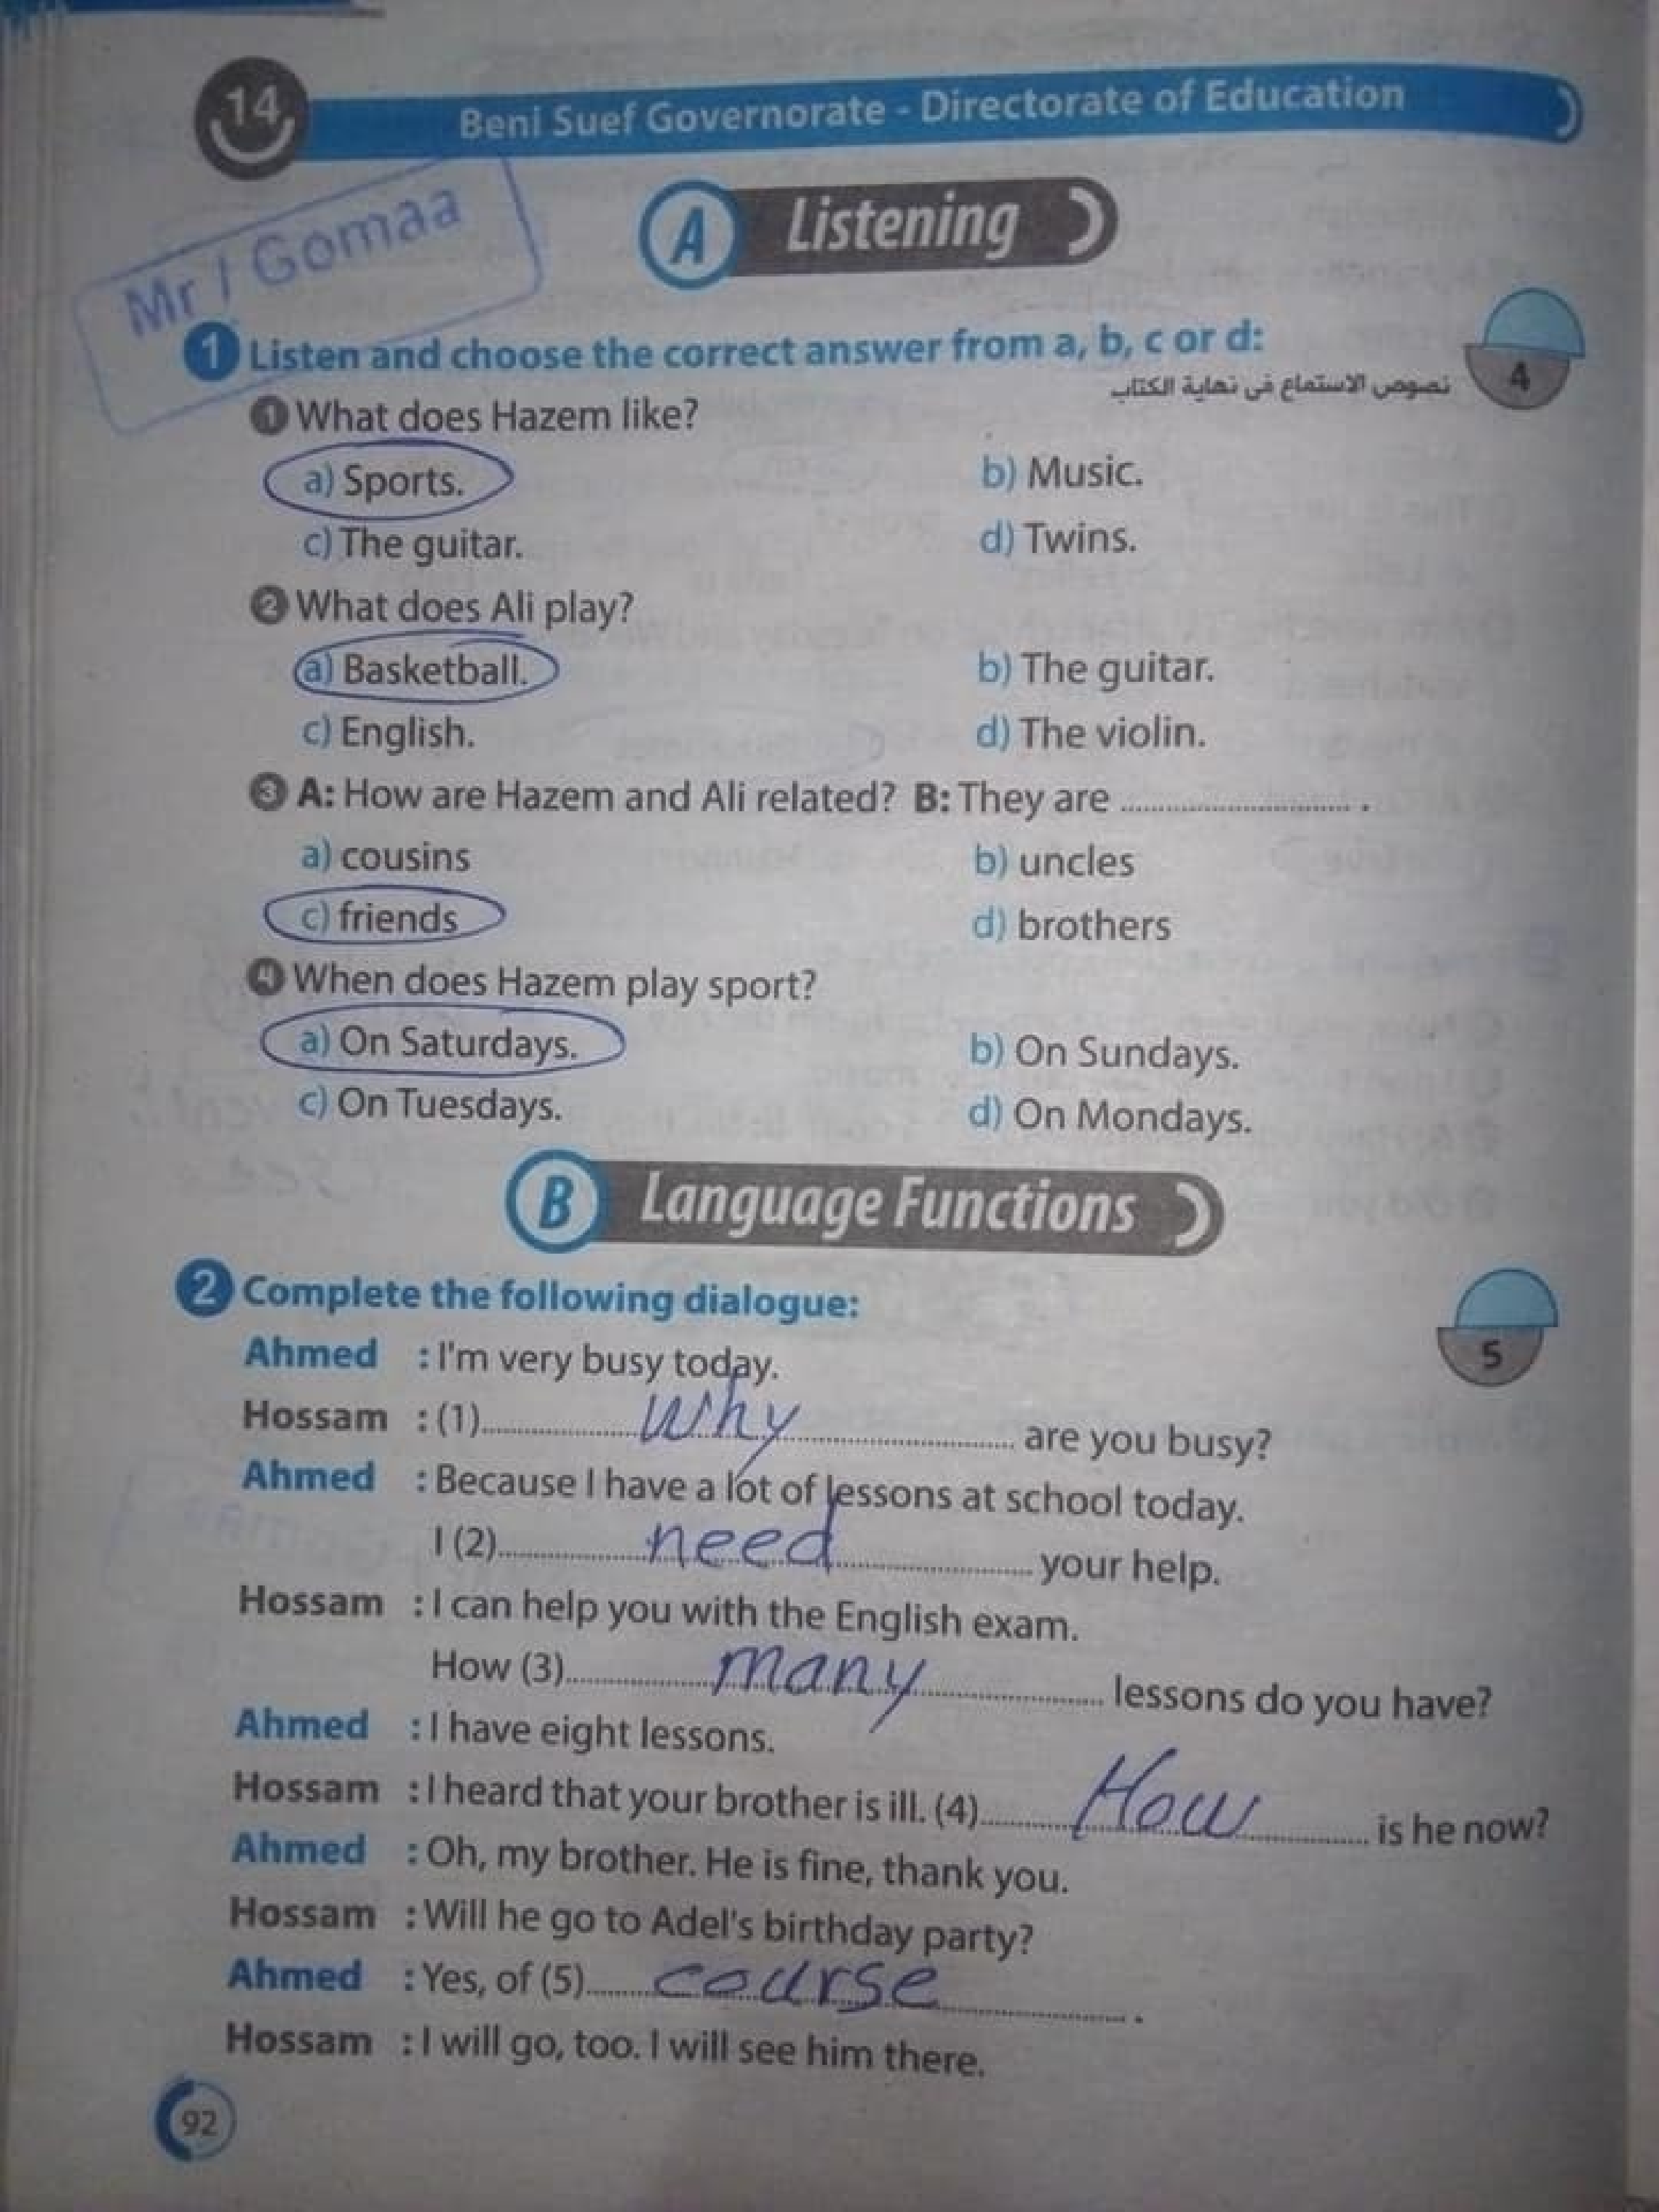 14
Beni Suef Governorate - Directorate of Education
Mr / Gomaa
A Listening
1 Listen and choose the correct answer from a, b, c or d:
4
نصوص الاستماع فى نهاية الكتاب
1 What does Hazem like?
a) Sports. b) Music.
c) The guitar. d) Twins.
2 What does Ali play?
a) Basketball. b) The guitar.
c) English. d) The violin.
3 A: How are Hazem and Ali related? B: They are .............................. .
a) cousins b) uncles
c) friends d) brothers
4 When does Hazem play sport?
a) On Saturdays. b) On Sundays.
c) On Tuesdays. d) On Mondays.
B Language Functions
2 Complete the following dialogue:
5
Ahmed : I'm very busy today.
Hossam : (1) why are you busy?
Ahmed : Because I have a lot of lessons at school today.
I (2) need your help.
Hossam : I can help you with the English exam.
How (3) many lessons do you have?
Ahmed : I have eight lessons.
Hossam : I heard that your brother is ill. (4) How is he now?
Ahmed : Oh, my brother. He is fine, thank you.
Hossam : Will he go to Adel's birthday party?
Ahmed : Yes, of (5) course .
Hossam : I will go, too. I will see him there.
92